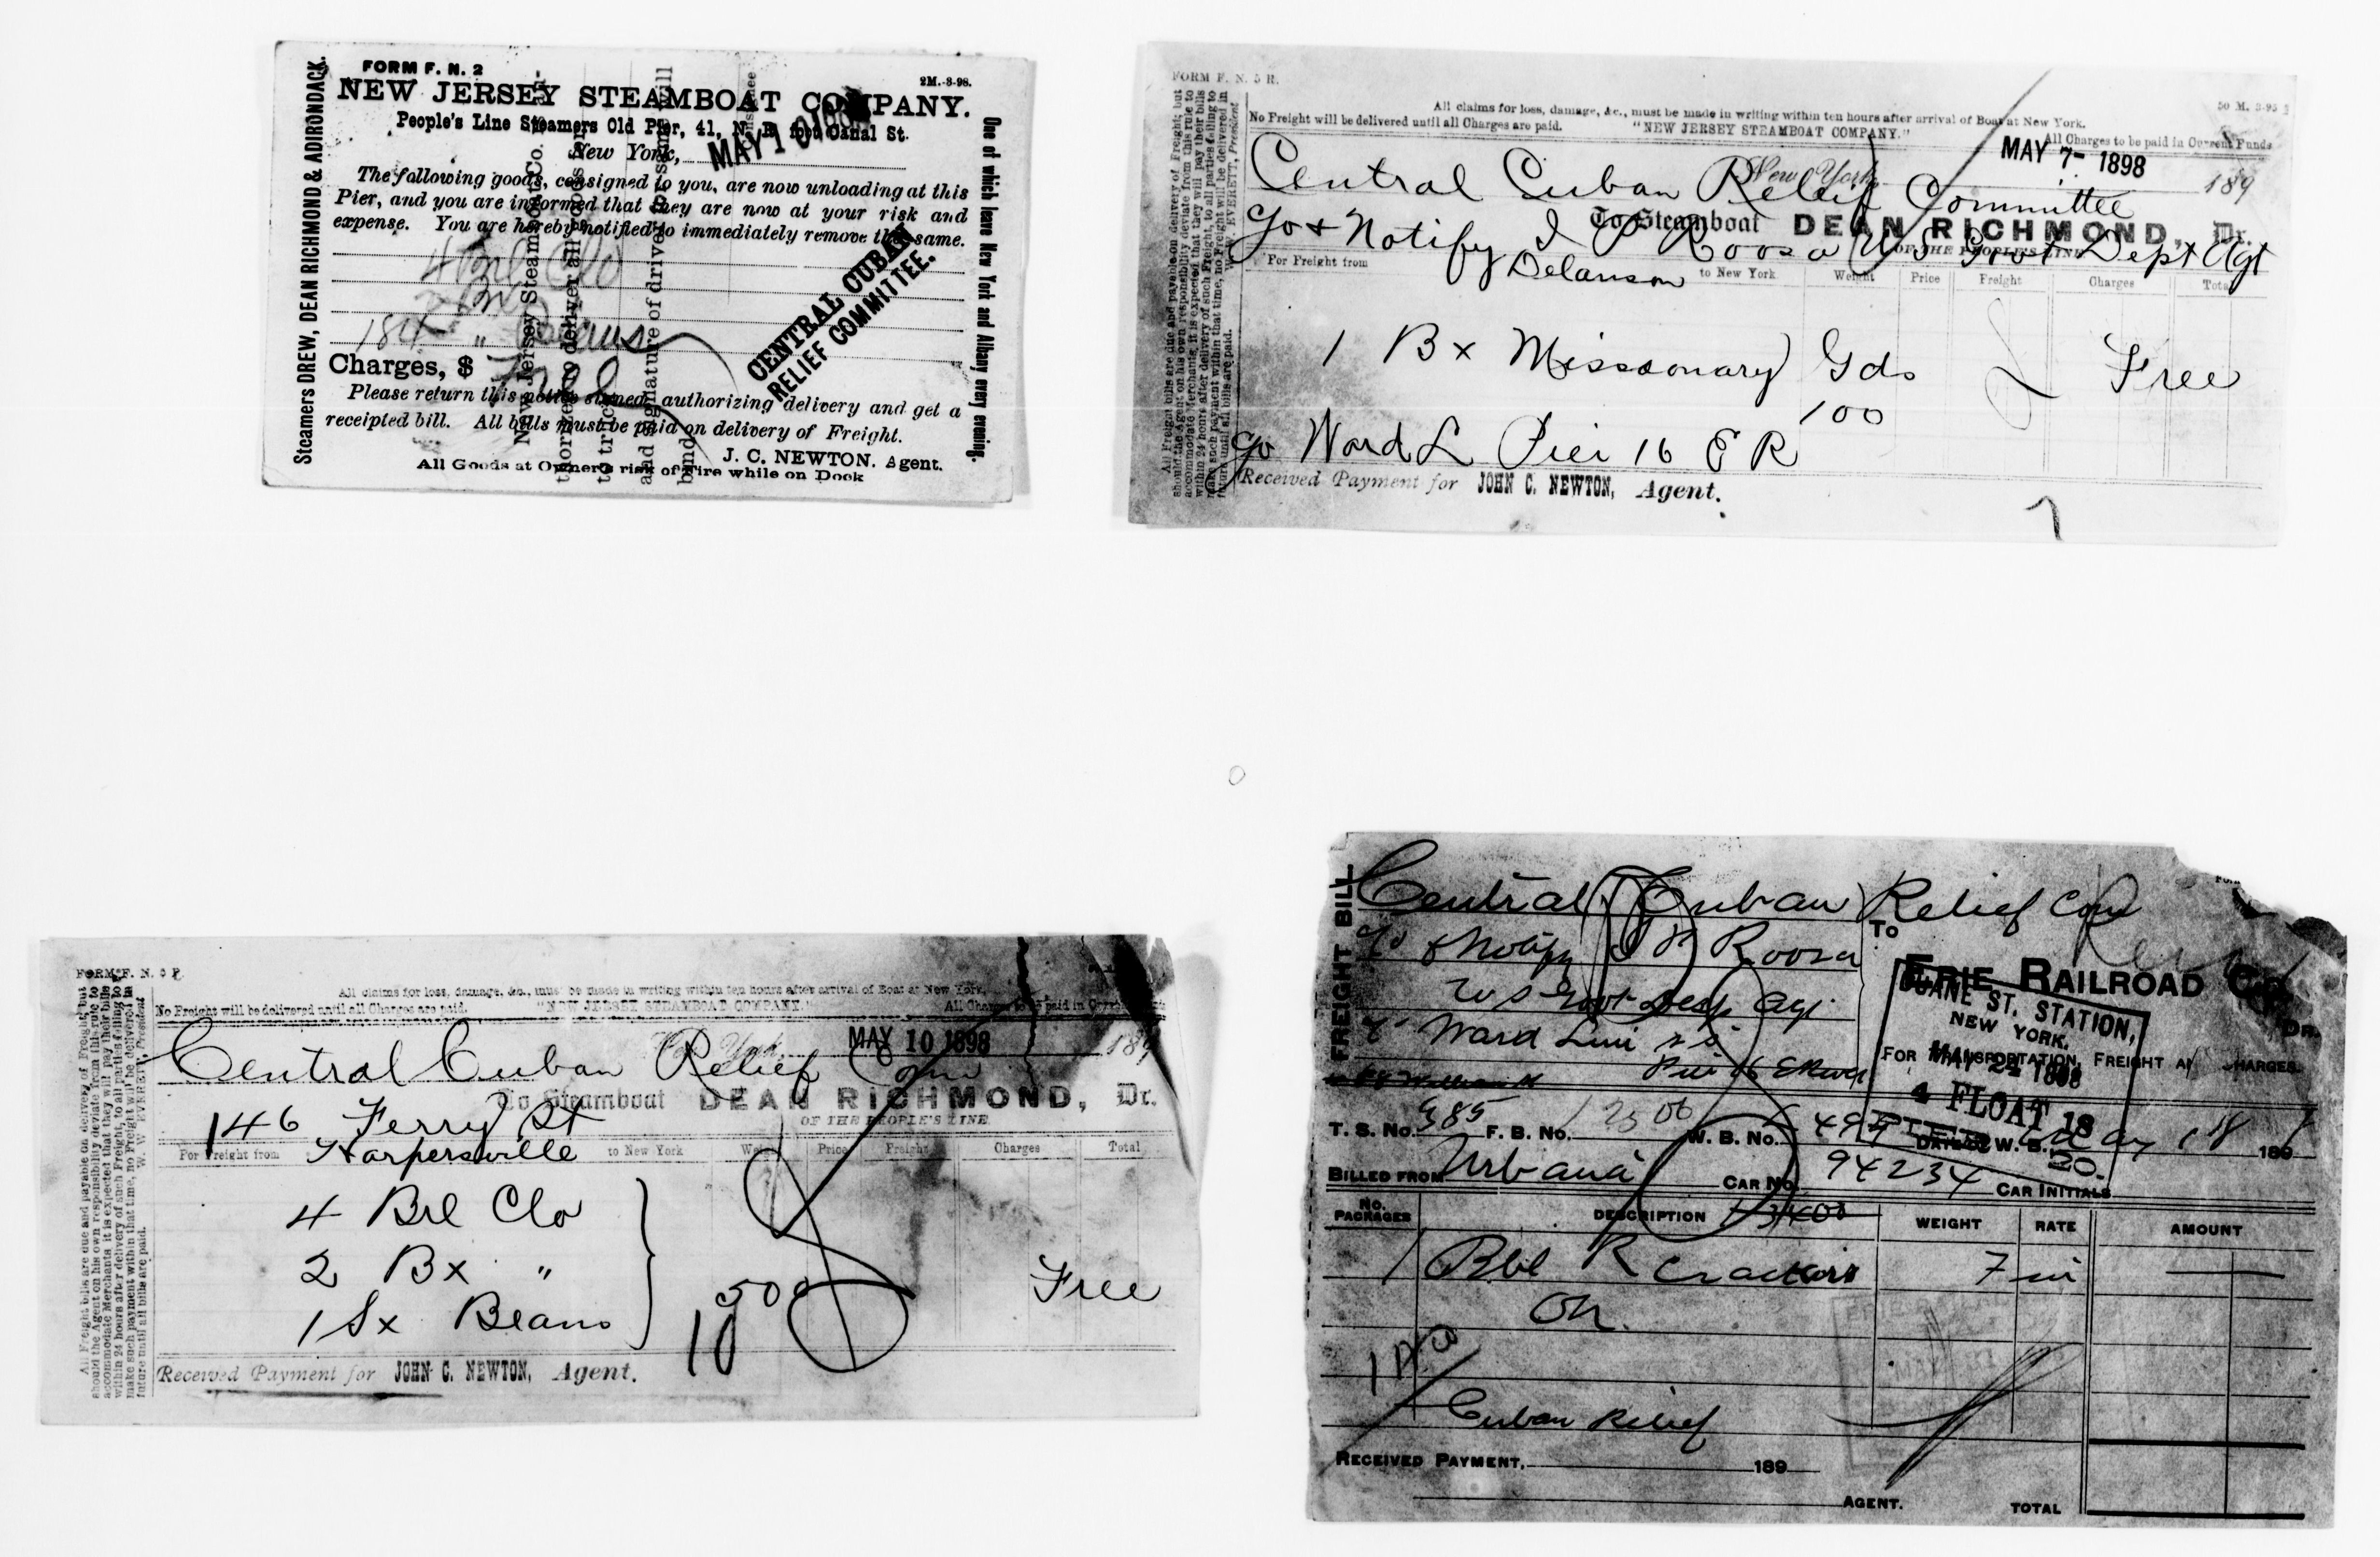 FORM F. N. 2
2M.-3-98.
NEW JERSEY STEAMBOAT COMPANY.
People's Line Steamers Old Pier, 41, N. R. foot Canal St.
New York, MAY 10 1898
The following goods, consigned to you, are now unloading at this
Pier, and you are informed that they are now at your risk and
expense. You are hereby notified to immediately remove the same.
4 Brl Clo
2 Bx "
1 Sx Beans
Charges, $ Free
Please return this notice signed, authorizing delivery and get a
receipted bill. All bills must be paid on delivery of Freight.
J. C. NEWTON. Agent.
All Goods at Owner's risk of Fire while on Dock
Steamers DREW, DEAN RICHMOND & ADIRONDACK.
One of which leave New York and Albany every evening.
CENTRAL CUBAN
RELIEF COMMITTEE.
New Jersey Steamboat Co.
to deliver all goods
and signature of driver
FORM F. N. 5 R.
50 M. 3-95
All claims for loss, damage, &c., must be made in writing within ten hours after arrival of Boat at New York.
No Freight will be delivered until all Charges are paid. "NEW JERSEY STEAMBOAT COMPANY." All Charges to be paid in Current Funds
New York, MAY 7- 1898 189
Central Cuban Relief Committee
To Steamboat DEAN RICHMOND, Dr.
OF THE PEOPLE'S LINE
Go + Notify I P Roosa U S Govt Dept Agt
For Freight from Delanson to New York Weight Price Freight Charges Total
1 Bx Missionary Gds
100
Free
Go Ward L Pier 16 E R
Received Payment for JOHN C. NEWTON, Agent.
All Freight bills are due and payable on delivery of Freight; but
should the Agent on his own responsibility deviate from this rule to
accommodate Merchants, it is expected that they will pay their bills
within 24 hours after delivery of such Freight, to all parties failing to
make such payment within that time, no Freight will be delivered in
future until all bills are paid. W. W. EVERETT, President
FORM F. N. 5 R.
All claims for loss, damage, &c., must be made in writing within ten hours after arrival of Boat at New York.
No Freight will be delivered until all Charges are paid. "NEW JERSEY STEAMBOAT COMPANY" All Charges to be paid in
New York, MAY 10 1898 189
Central Cuban Relief Com
To Steamboat DEAN RICHMOND, Dr.
OF THE PEOPLE'S LINE
146 Ferry St
For Freight from Harpersville to New York Weight Price Freight Charges Total
4 Brl Clo
2 Bx "
1 Sx Beans
500
10
Free
Received Payment for JOHN C. NEWTON, Agent.
All Freight bills are due and payable on delivery of Freight; but
should the Agent on his own responsibility deviate from this rule to
accommodate Merchants it is expected that they will pay their bills
within 24 hours after delivery of such Freight, to all parties failing to
make such payment within that time, no Freight will be delivered in
future until all bills are paid. W. W. EVERETT, President
FREIGHT BILL
Central Cuban Relief Com
& Notify I P Roosa
U S Govt Dept Agt
Ward Line
Pier 16 E River
To
ERIE RAILROAD Co. DR.
DUANE ST. STATION,
NEW YORK.
FOR TRANSPORTATION, FREIGHT AND CHARGES.
MAY 24 1898
4 FLOAT 18
PIER 20.
T. S. No. 385 F. B. No. W. B. No. DATE OF W. B. May 18 189
BILLED FROM Urbana CAR No. 94234 CAR INITIALS
No. PACKAGES DESCRIPTION 13400 WEIGHT RATE AMOUNT
1 Bbl R Crackers
OR.
Cuban Relief
RECEIVED PAYMENT, 189
AGENT. TOTAL